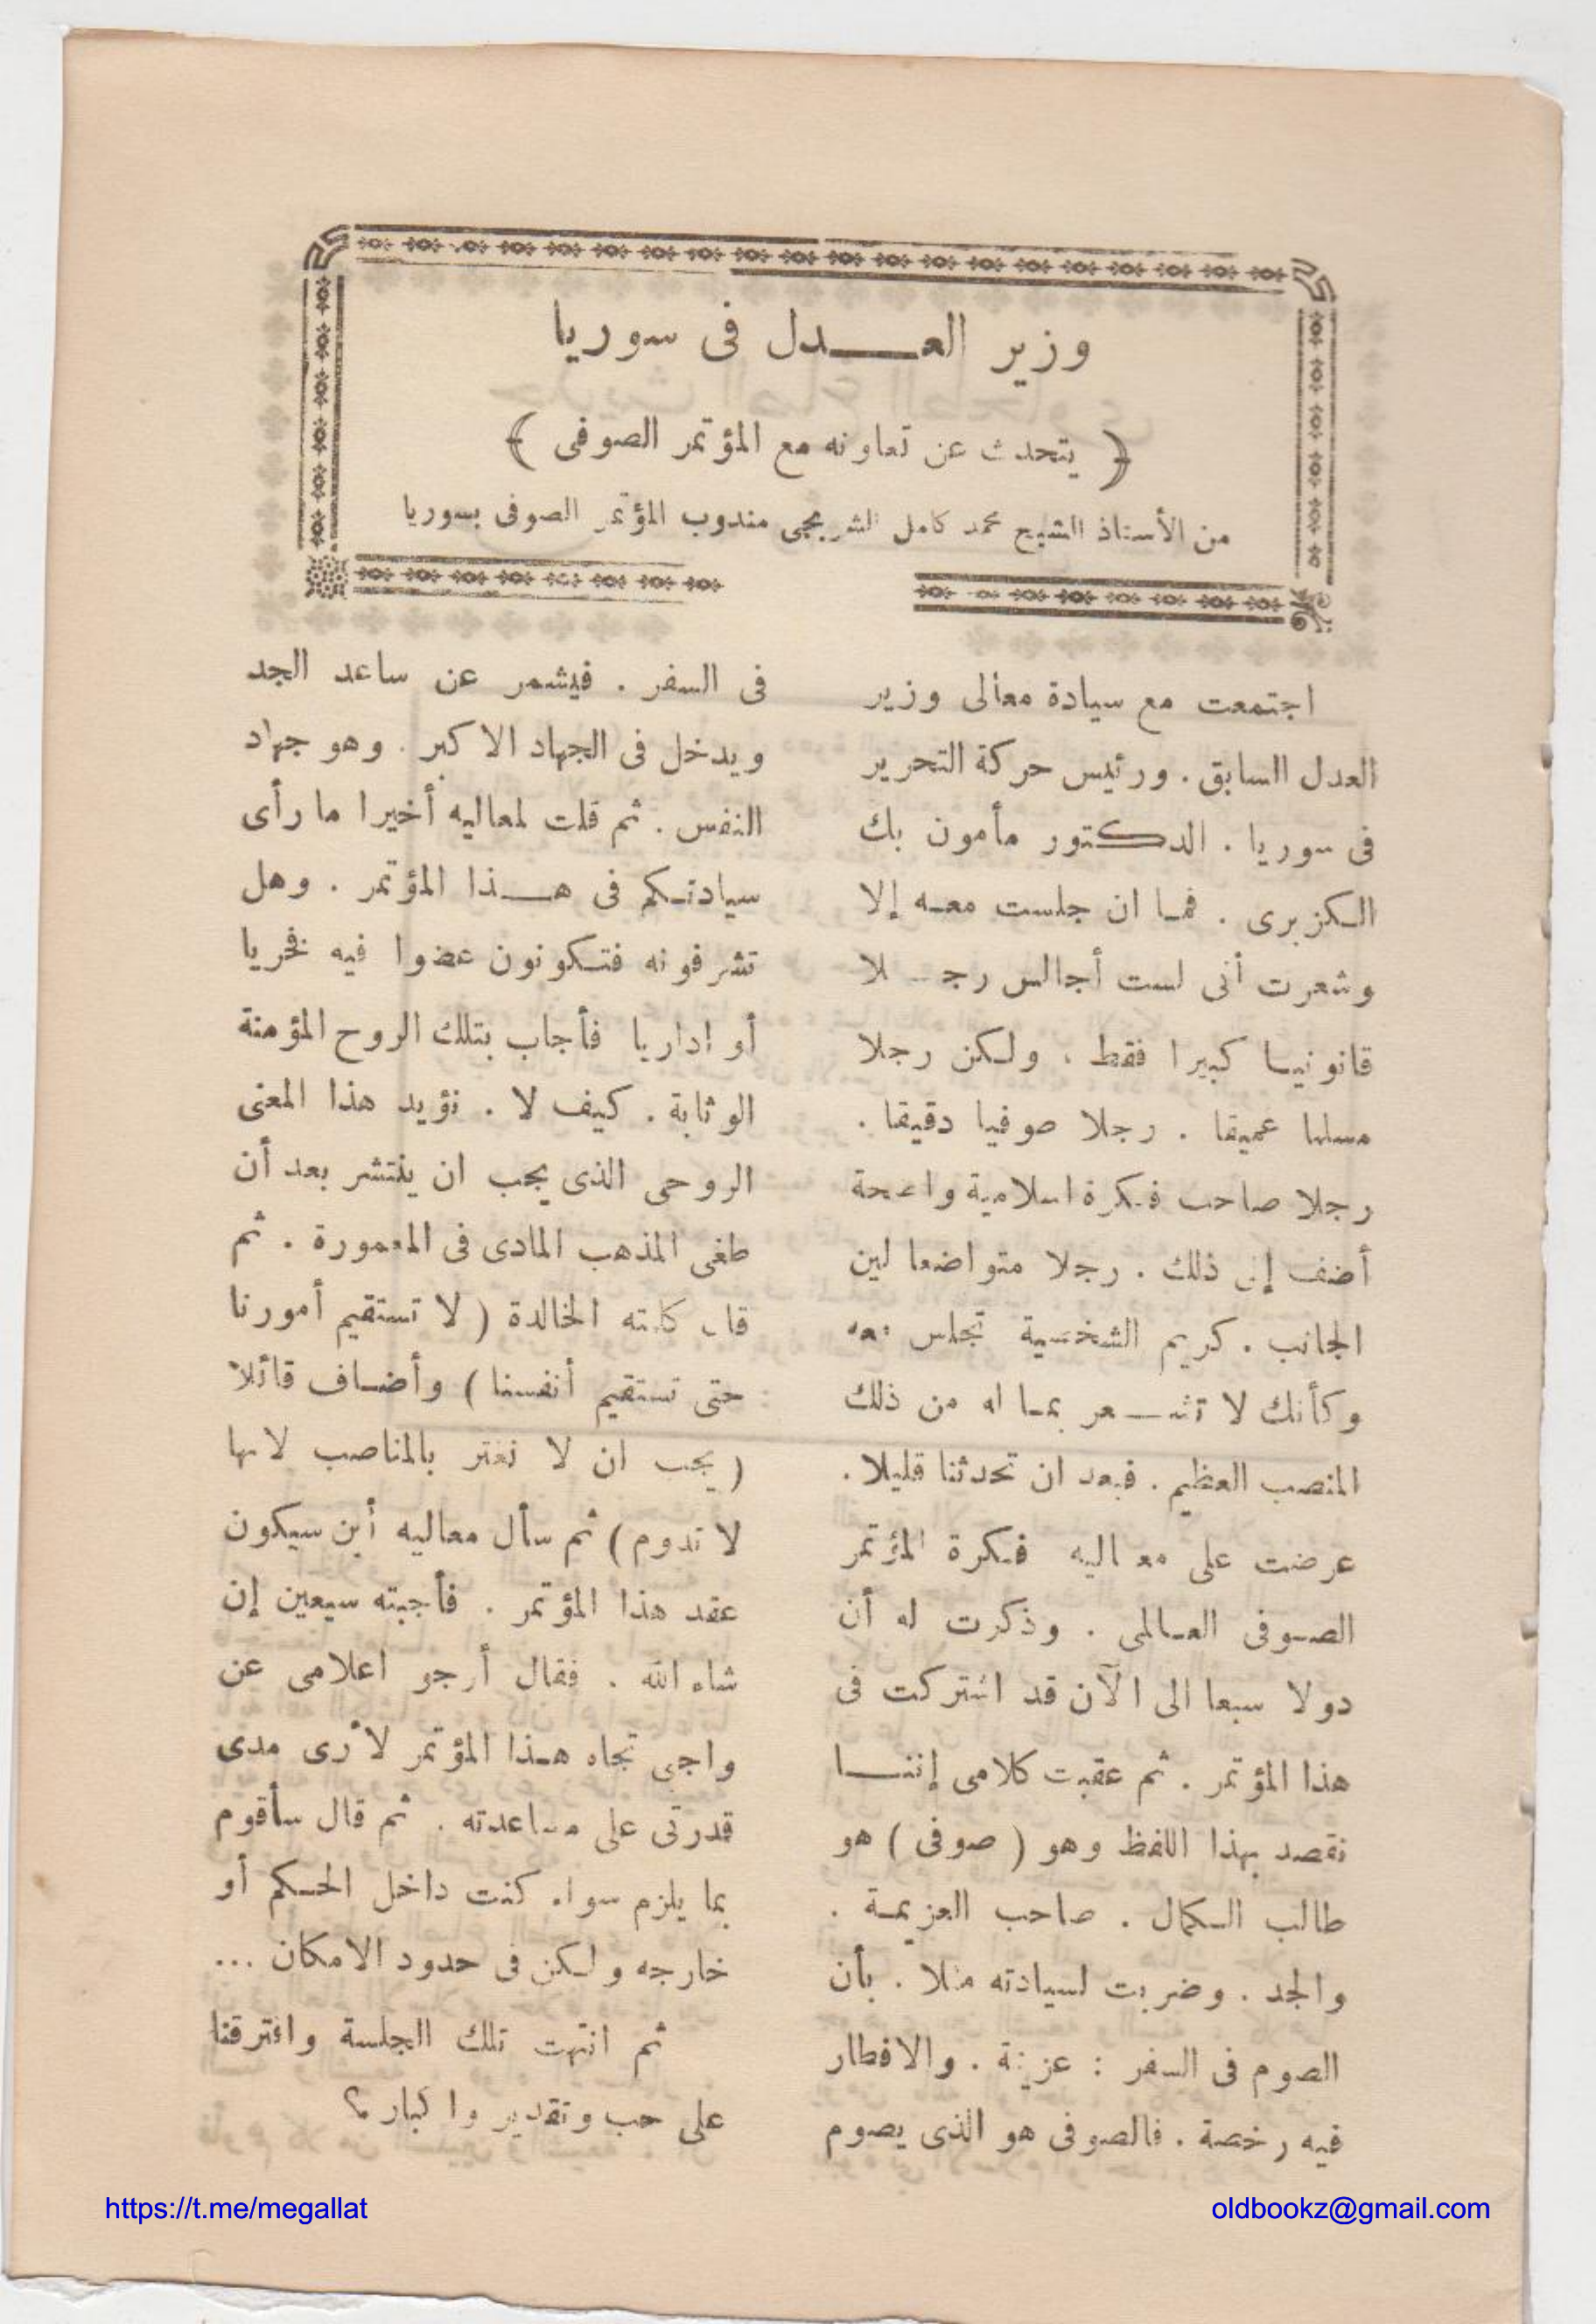 وزير العدل فى سوريا
﴿ يتحدث عن تعاونه مع المؤتمر الصوفى ﴾
من الأستاذ الشيخ محمد كامل الشربجى مندوب المؤتمر الصوفى بسوريا
اجتمعت مع سيادة معالى وزير
العدل السابق . ورئيس حركة التحرير
فى سوريا . الدكتور مأمون بك
الكزبرى . فما ان جلست معه إلا
وشعرت أنى لست أجالس رجلا
قانونيا كبيرا فقط ، ولكن رجلا
مسلما عميقا . رجلا صوفيا دقيقا .
رجلا صاحب فكرة اسلامية واضحة
أضف إلى ذلك . رجلا متواضعا لين
الجانب . كريم الشخصية تجلس معه
وكأنك لا تشعر بما له من ذلك
المنصب العظيم . فبعد ان تحدثنا قليلا .
عرضت على معاليه فكرة المؤتمر
الصوفى العالمى . وذكرت له أن
دولا سبعا الى الآن قد اشتركت فى
هذا المؤتمر . ثم عقبت كلامى إننا
نقصد بهذا اللفظ وهو ( صوفى ) هو
طالب الكمال . صاحب العزيمة .
والجد . وضربت لسيادته مثلا . بأن
الصوم فى السفر : عزيمة . والافطار
فيه رخصة . فالصوفى هو الذى يصوم
فى السفر . فيشمر عن ساعد الجد
ويدخل فى الجهاد الاكبر . وهو جهاد
النفس . ثم قلت لمعاليه أخيرا ما رأى
سيادتكم فى هذا المؤتمر . وهل
تشرفونه فتكونون عضوا فيه فخريا
أو اداريا فأجاب بتلك الروح المؤمنة
الوثابة . كيف لا . نؤيد هذا المعنى
الروحى الذى يجب ان ينتشر بعد أن
طغى المذهب المادى فى المعمورة . ثم
قال كلمته الخالدة ( لا تستقيم أمورنا
حتى تستقيم أنفسنا ) وأضاف قائلا
( يجب ان لا نغتر بالمناصب لانها
لا تدوم ) ثم سأل معاليه أين سيكون
عقد هذا المؤتمر . فأجبته سيعين إن
شاء الله . فقال أرجو اعلامى عن
واجبى تجاه هذا المؤتمر لأرى مدى
قدرتى على مساعدته . ثم قال سأقوم
بما يلزم سواء كنت داخل الحكم أو
خارجه ولكن فى حدود الامكان ...
ثم انتهت تلك الجلسة وافترقنا
على حب وتقدير واكبار ؟
https://t.me/megallat
oldbookz@gmail.com